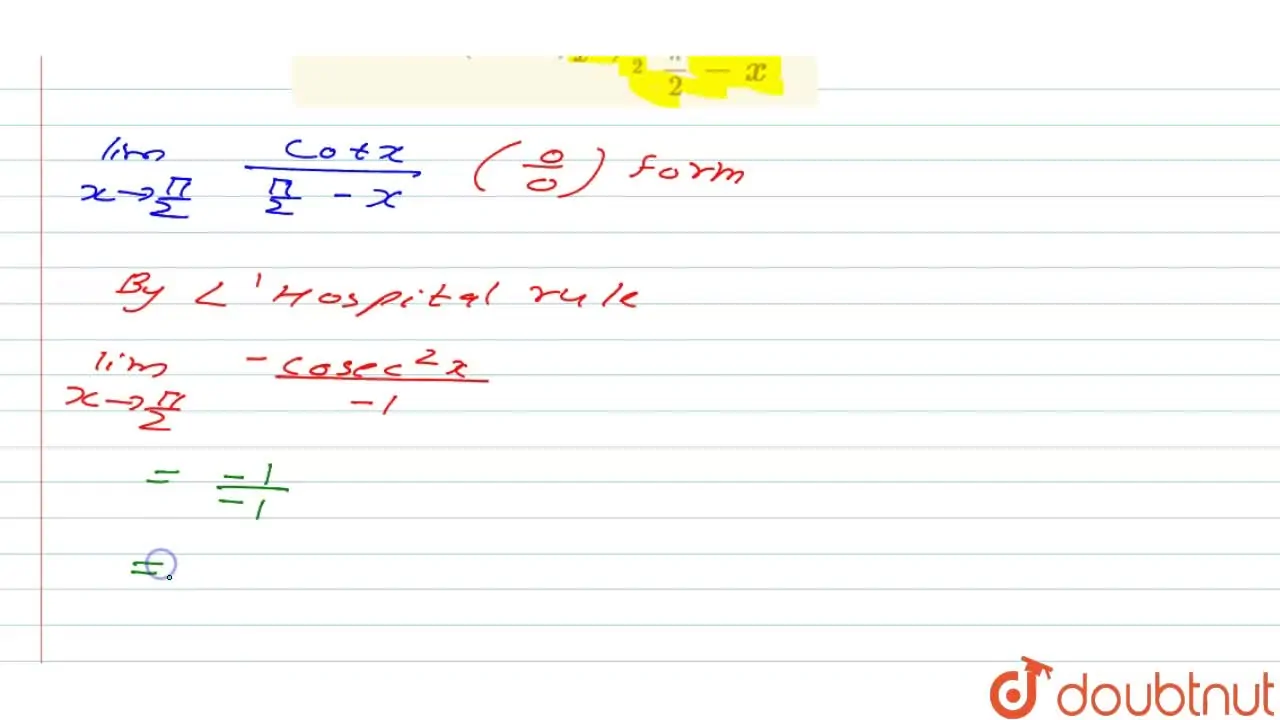 2 π/2 - x
lim x→π/2 cotx / (π/2 - x) (0/0) form
By L'Hospital rule
lim x→π/2 -cosec²x / -1
= -1 / -1
=
doubtnut